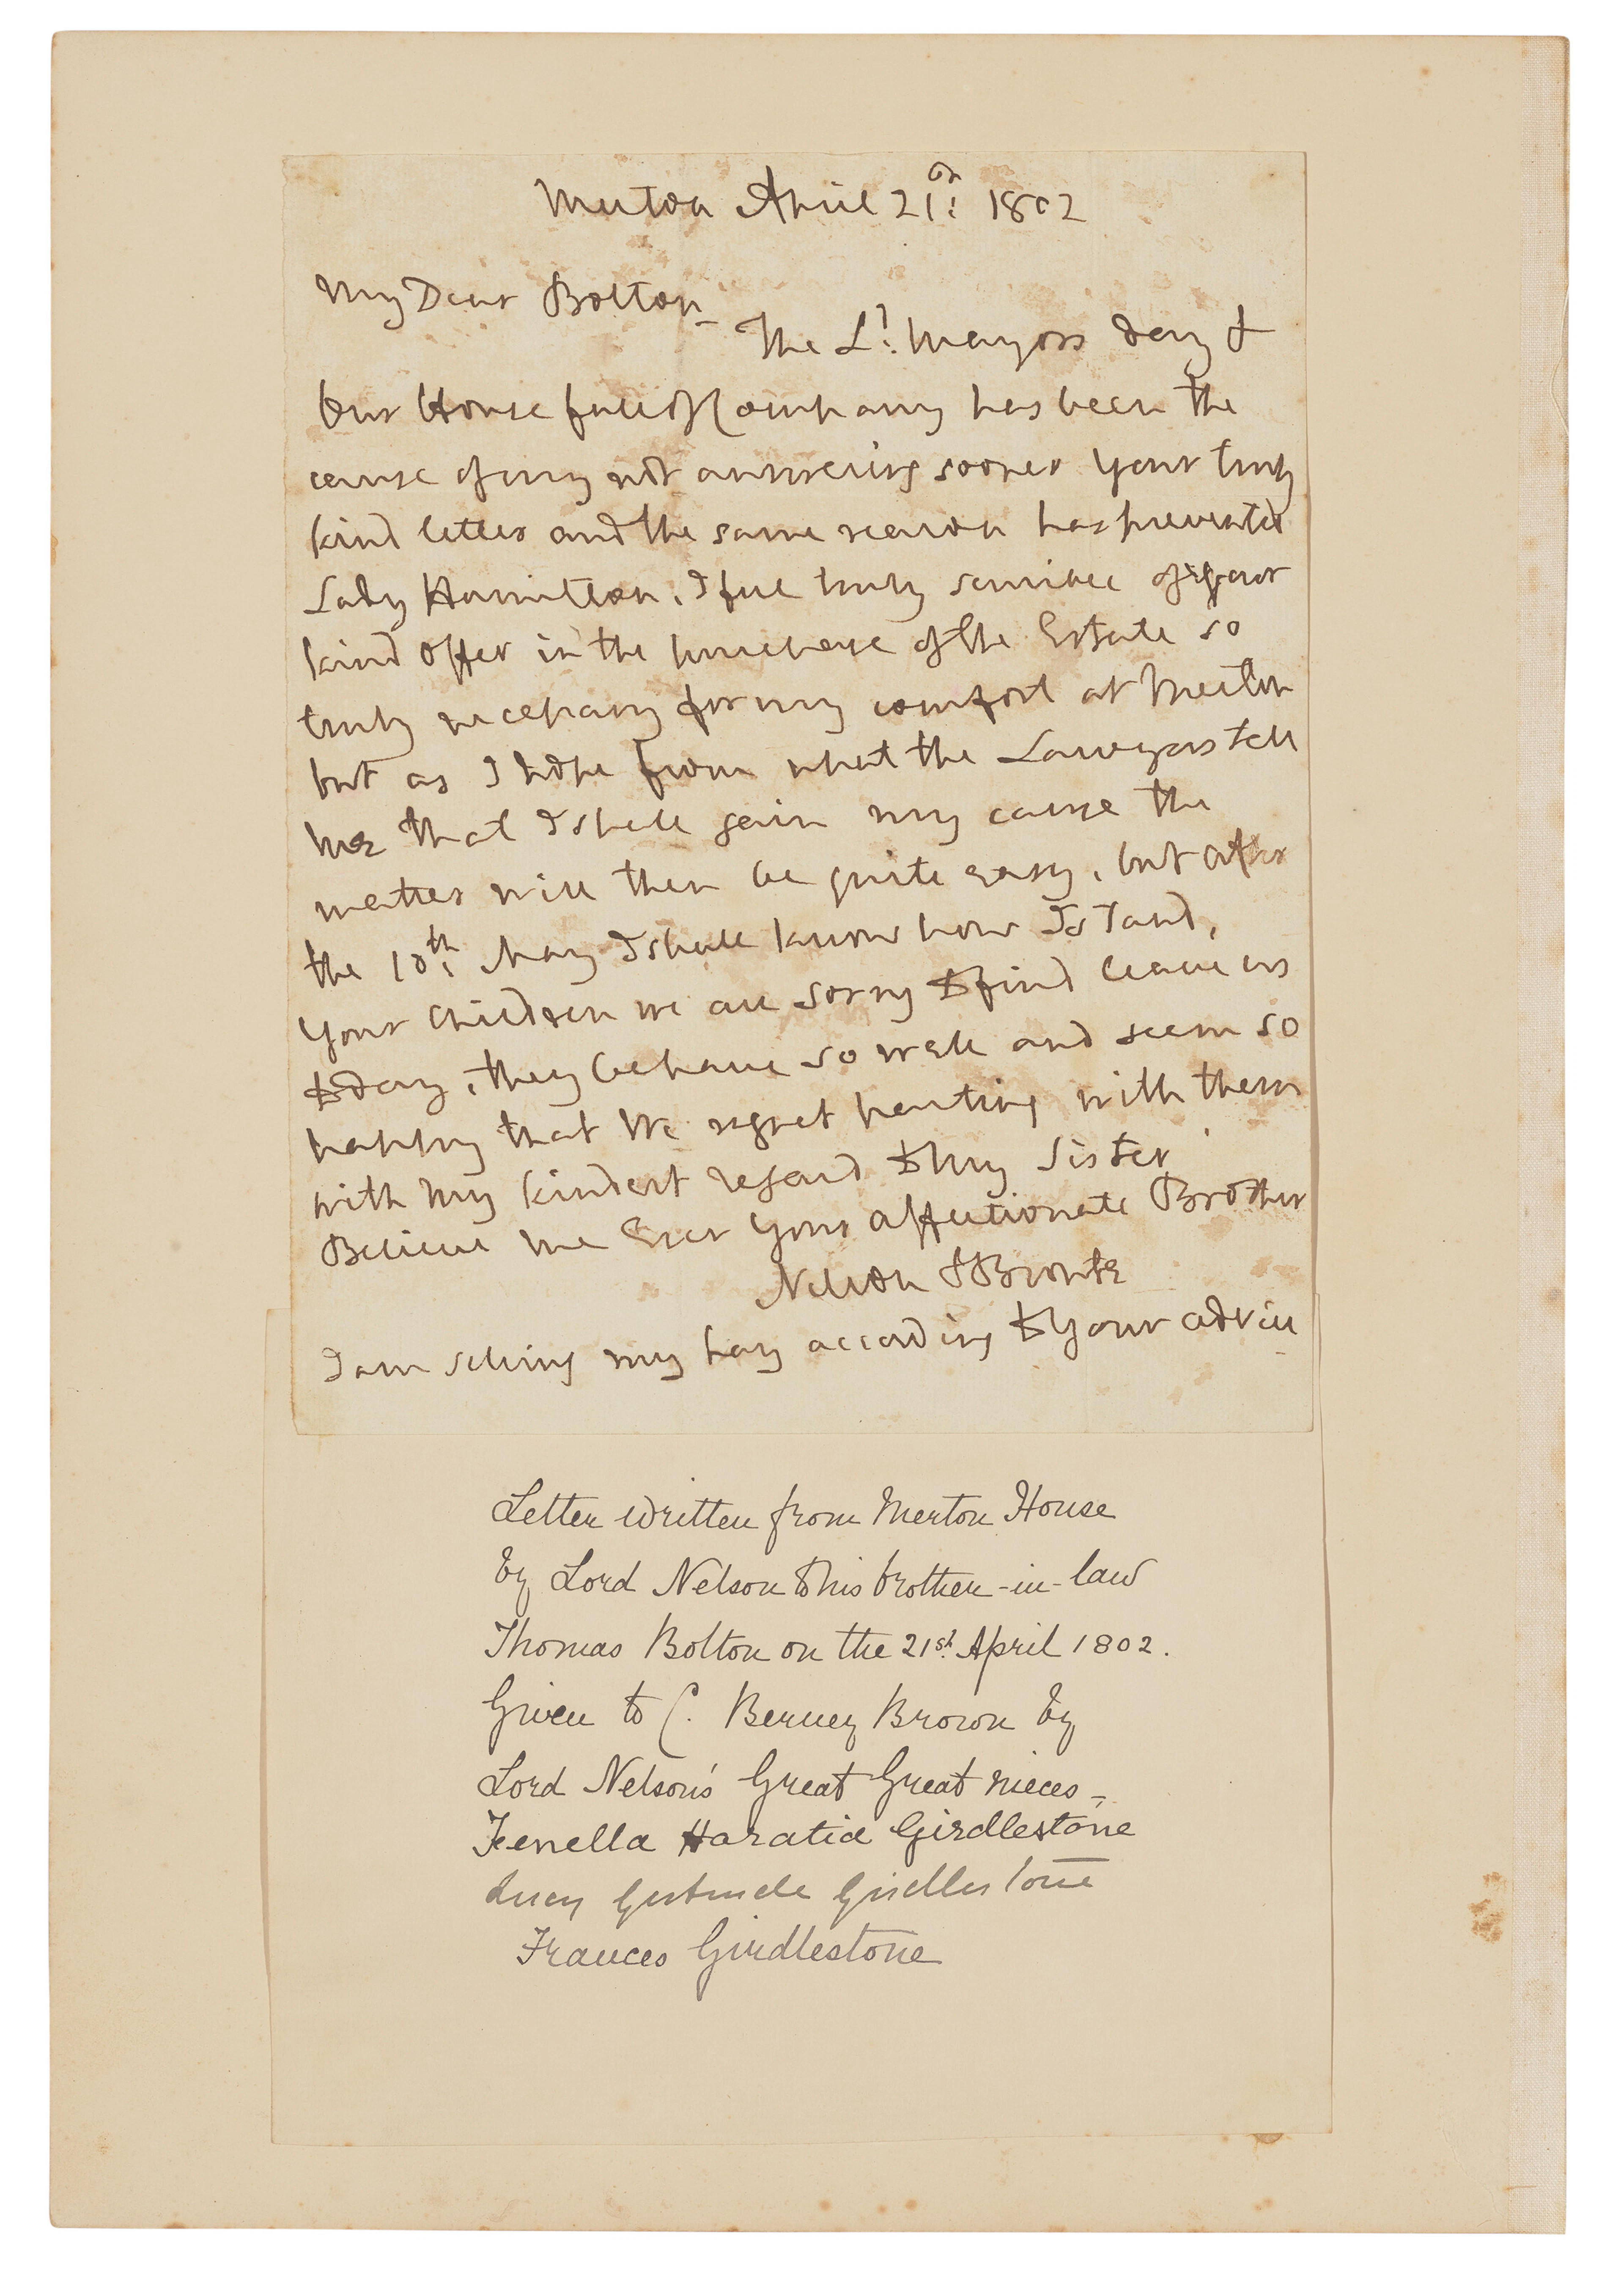 Merton April 21st: 1802
My Dear Bolton_
The Ld: Mayors day &
our House full of Company has been the
cause of my not answering sooner your truly
kind letter and the same reason has prevented
Lady Hamilton, I feel truly sensible of your
kind offer in the purchase of the Estate so
truly necessary for my comfort at Merton
but as I hope from what the Lawyers tell
me that I shall gain my cause the
matter will then be quite easy, but after
the 10th: May I shall know how I stand,
Your Children we are sorry to find leave us
to day, they behave so well and seem so
happy that We regret parting with them
with my kindest regard to my sister
Believe me Ever your affectionate Brother
Nelson & Bronte
I am selling my hay according to your advice
Letter written from Merton House
by Lord Nelson to his brother-in-law
Thomas Bolton on the 21st. April 1802.
Given to C. Berney Brown by
Lord Nelson's Great Great nieces_
Fenella Haratia Girdlestone
Lucy Gertrude Girdlestone
Frances Girdlestone